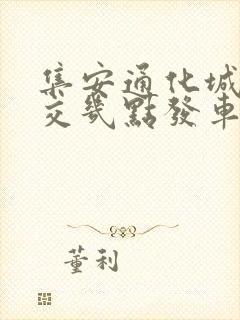 集安通化城
交幾點發車
董利